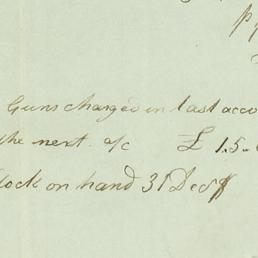 Guns charged in last acco
the next a/c £ 1.5.
tock on hand 31 Dec